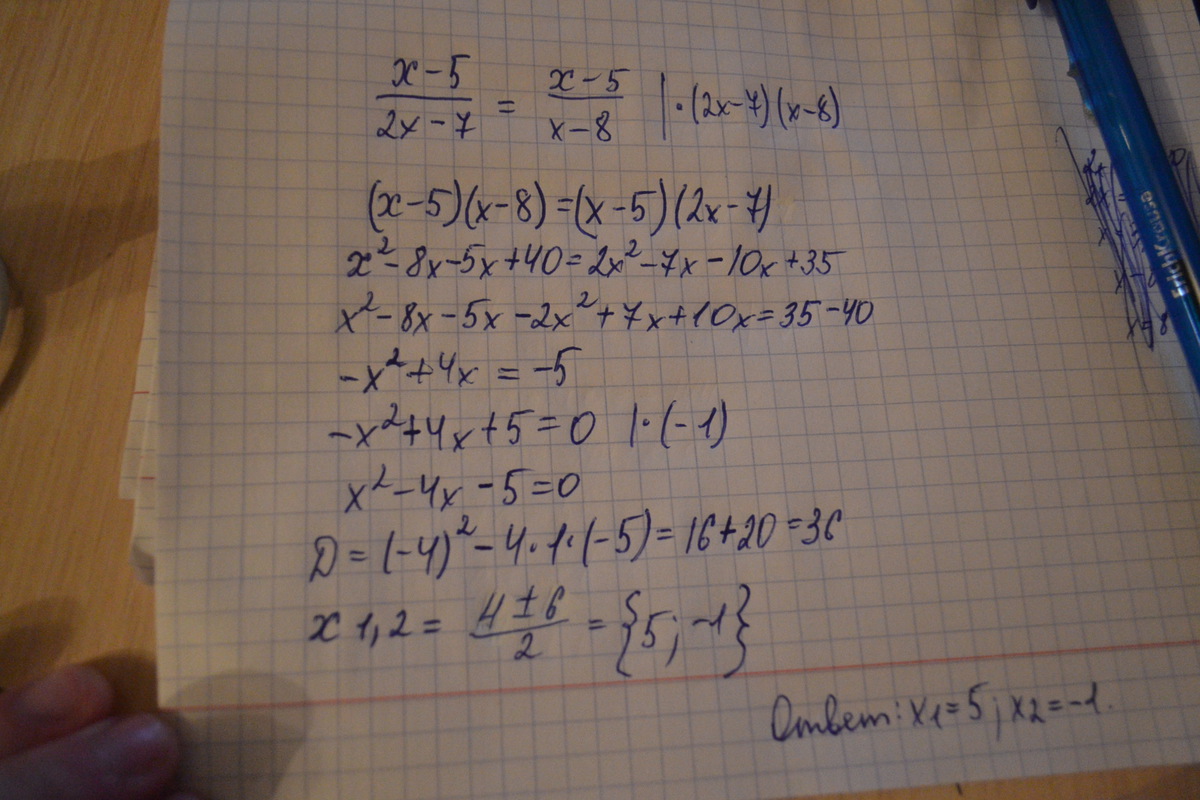 x-5/2x-7 = x-5/x-8 | ·(2x-7)(x-8)
(x-5)(x-8)=(x-5)(2x-7)
x²-8x-5x+40=2x²-7x-10x+35
x²-8x-5x-2x²+7x+10x=35-40
-x²+4x=-5
-x²+4x+5=0 |·(-1)
x²-4x-5=0
D=(-4)²-4·1·(-5)=16+20=36
x 1,2 = 4±6/2 = {5; -1}
Ответ: x₁=5; x₂=-1.
ErichKrause